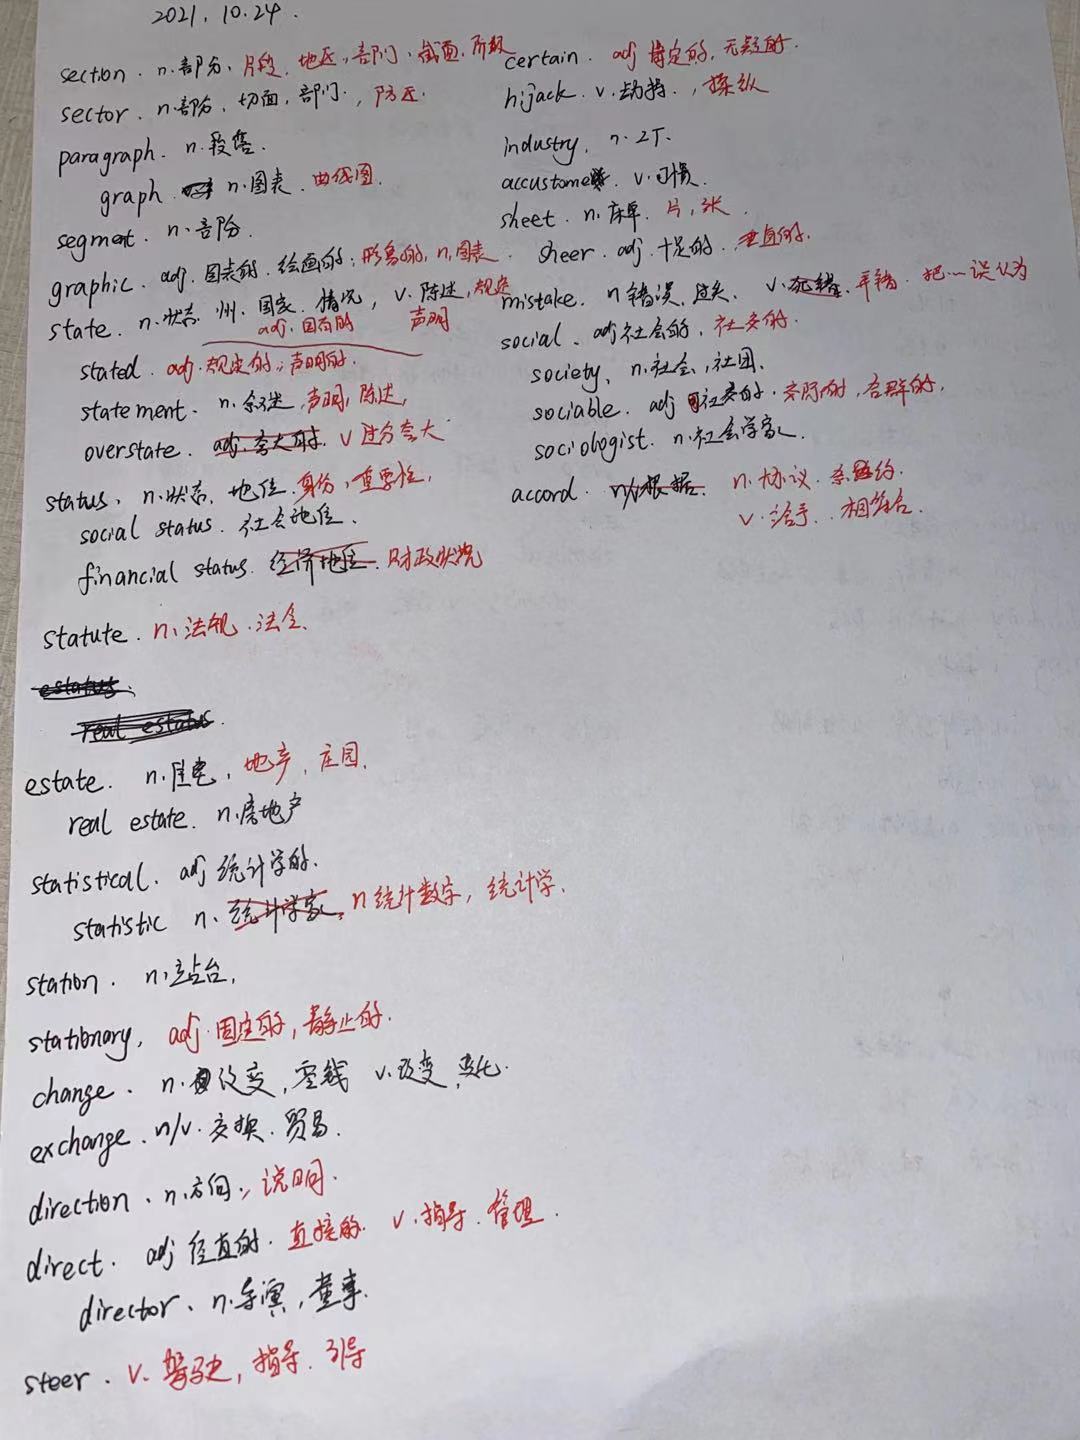 2021.10.24.
section. n.部分,片段,地区,部门,截面,阶级
sector. n.部分,切面,部门,防区.
paragraph. n.段落.
graph. n.图表.曲线图.
segment. n.部分.
graphic. adj.图表的.绘画的;形象的,n.图表.
state. n.状态.州.国家.情况, v.陈述,规定
adj.国有的 声明
stated. adj.规定的;声明的.
statement. n.叙述,声明,陈述,
overstate. adj.夸大的. v过分夸大
status. n.状态.地位.身份,重要性,
social status. 社会地位.
financial status. 经济地位. 财政状况
statute. n.法规.法令.
estatus.
real estatus.
estate. n.住宅,地产,庄园.
real estate. n.房地产
statistical. adj 统计学的.
statistic n.统计学家, n统计数字,统计学.
station. n.站台,
stationary, adj.固定的,静止的.
change. n.改变,零钱 v.改变,变化.
exchange. n/v.交换.贸易.
direction. n.方向,说明.
direct. adj 径直的.直接的. v.指导.管理.
director. n.导演,董事.
steer. v.驾驶,指导.引导
certain. adj 肯定的,无疑的.
hijack. v.劫持.,操纵
industry. n.工厂.
accustome. v.习惯.
sheet. n.床单.片,张.
sheer. adj.十足的.垂直的.
mistake. n 错误.过失. v.弄错.把…误认为
social. adj 社会的,社交的.
society. n.社会,社团.
sociable. adj 社交的.交际的,合群的,
sociologist. n.社会学家.
accord. n/v根据. n.协议.条约.
v.给予.相结合.